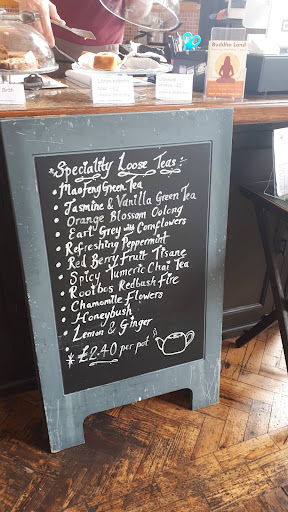 Buddha Land
*Speciality Loose Teas:-
• Maofeng Green Tea
• Jasmine & Vanilla Green Tea
• Orange Blossom Oolong
• Earl Grey with Cornflowers
• Refreshing Peppermint
• Red Berry Fruit Tisane
• Spicy Tumeric Chai Tea
• Rooibos Redbush Fire
• Chamomile Flowers
• Honeybush
• Lemon & Ginger
* £2.40 per pot